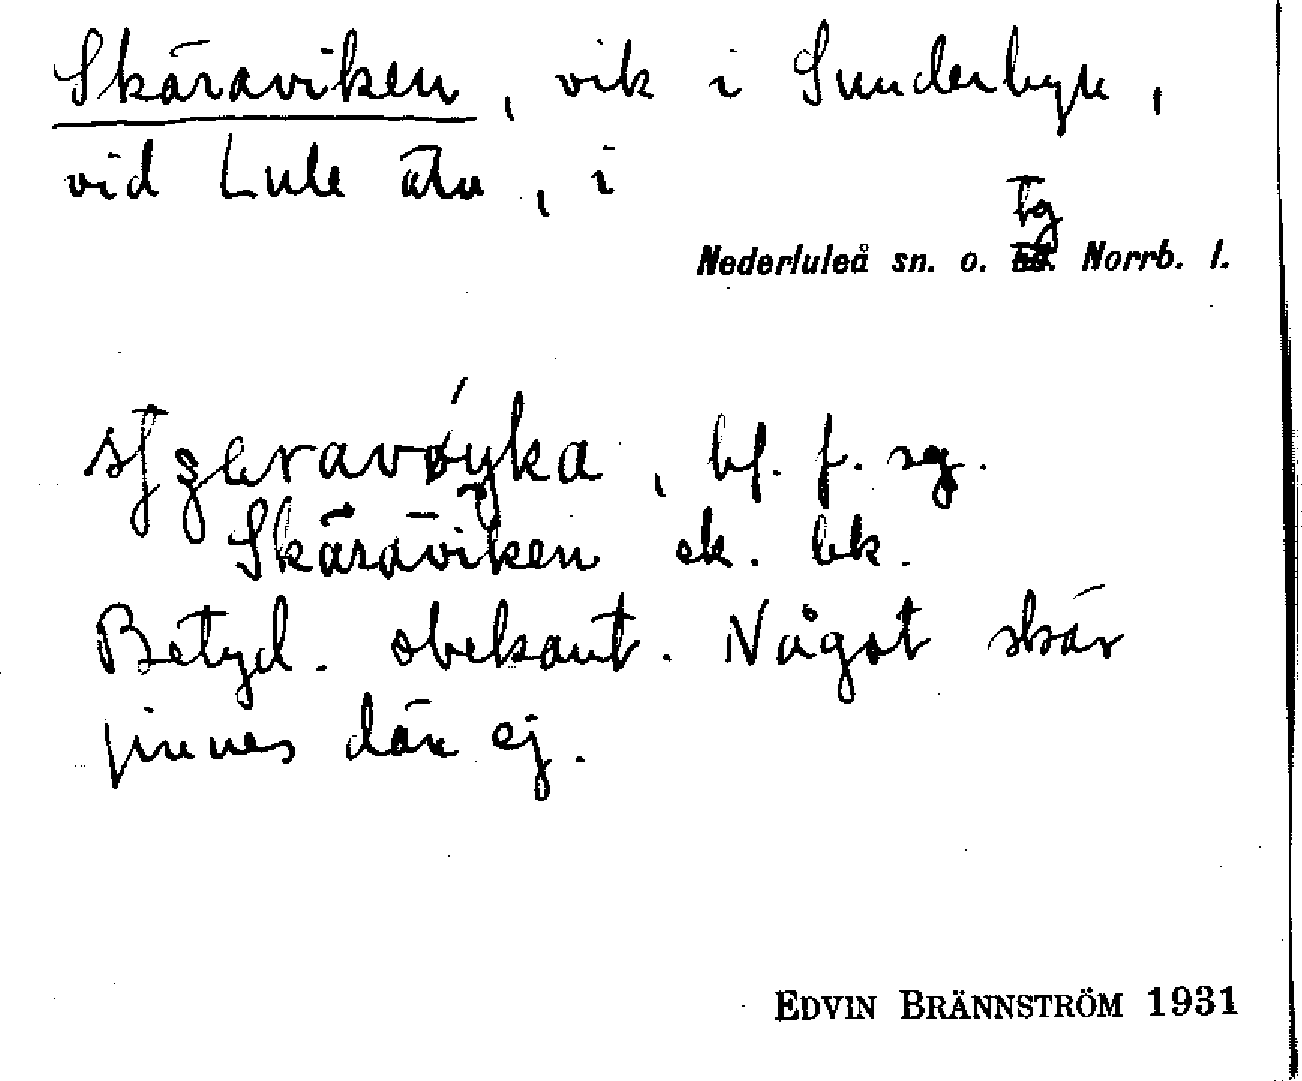 Skäraviken, vik i Sunderbyn,
vid Lule älv, i
Tg
Nederluleå sn. o. Norrb. l.
bf. f. sg.
Skäräviken ek. bk.
Betyd. obekant. Något skär
finnes där ej.
EDVIN BRÄNNSTRÖM 1931